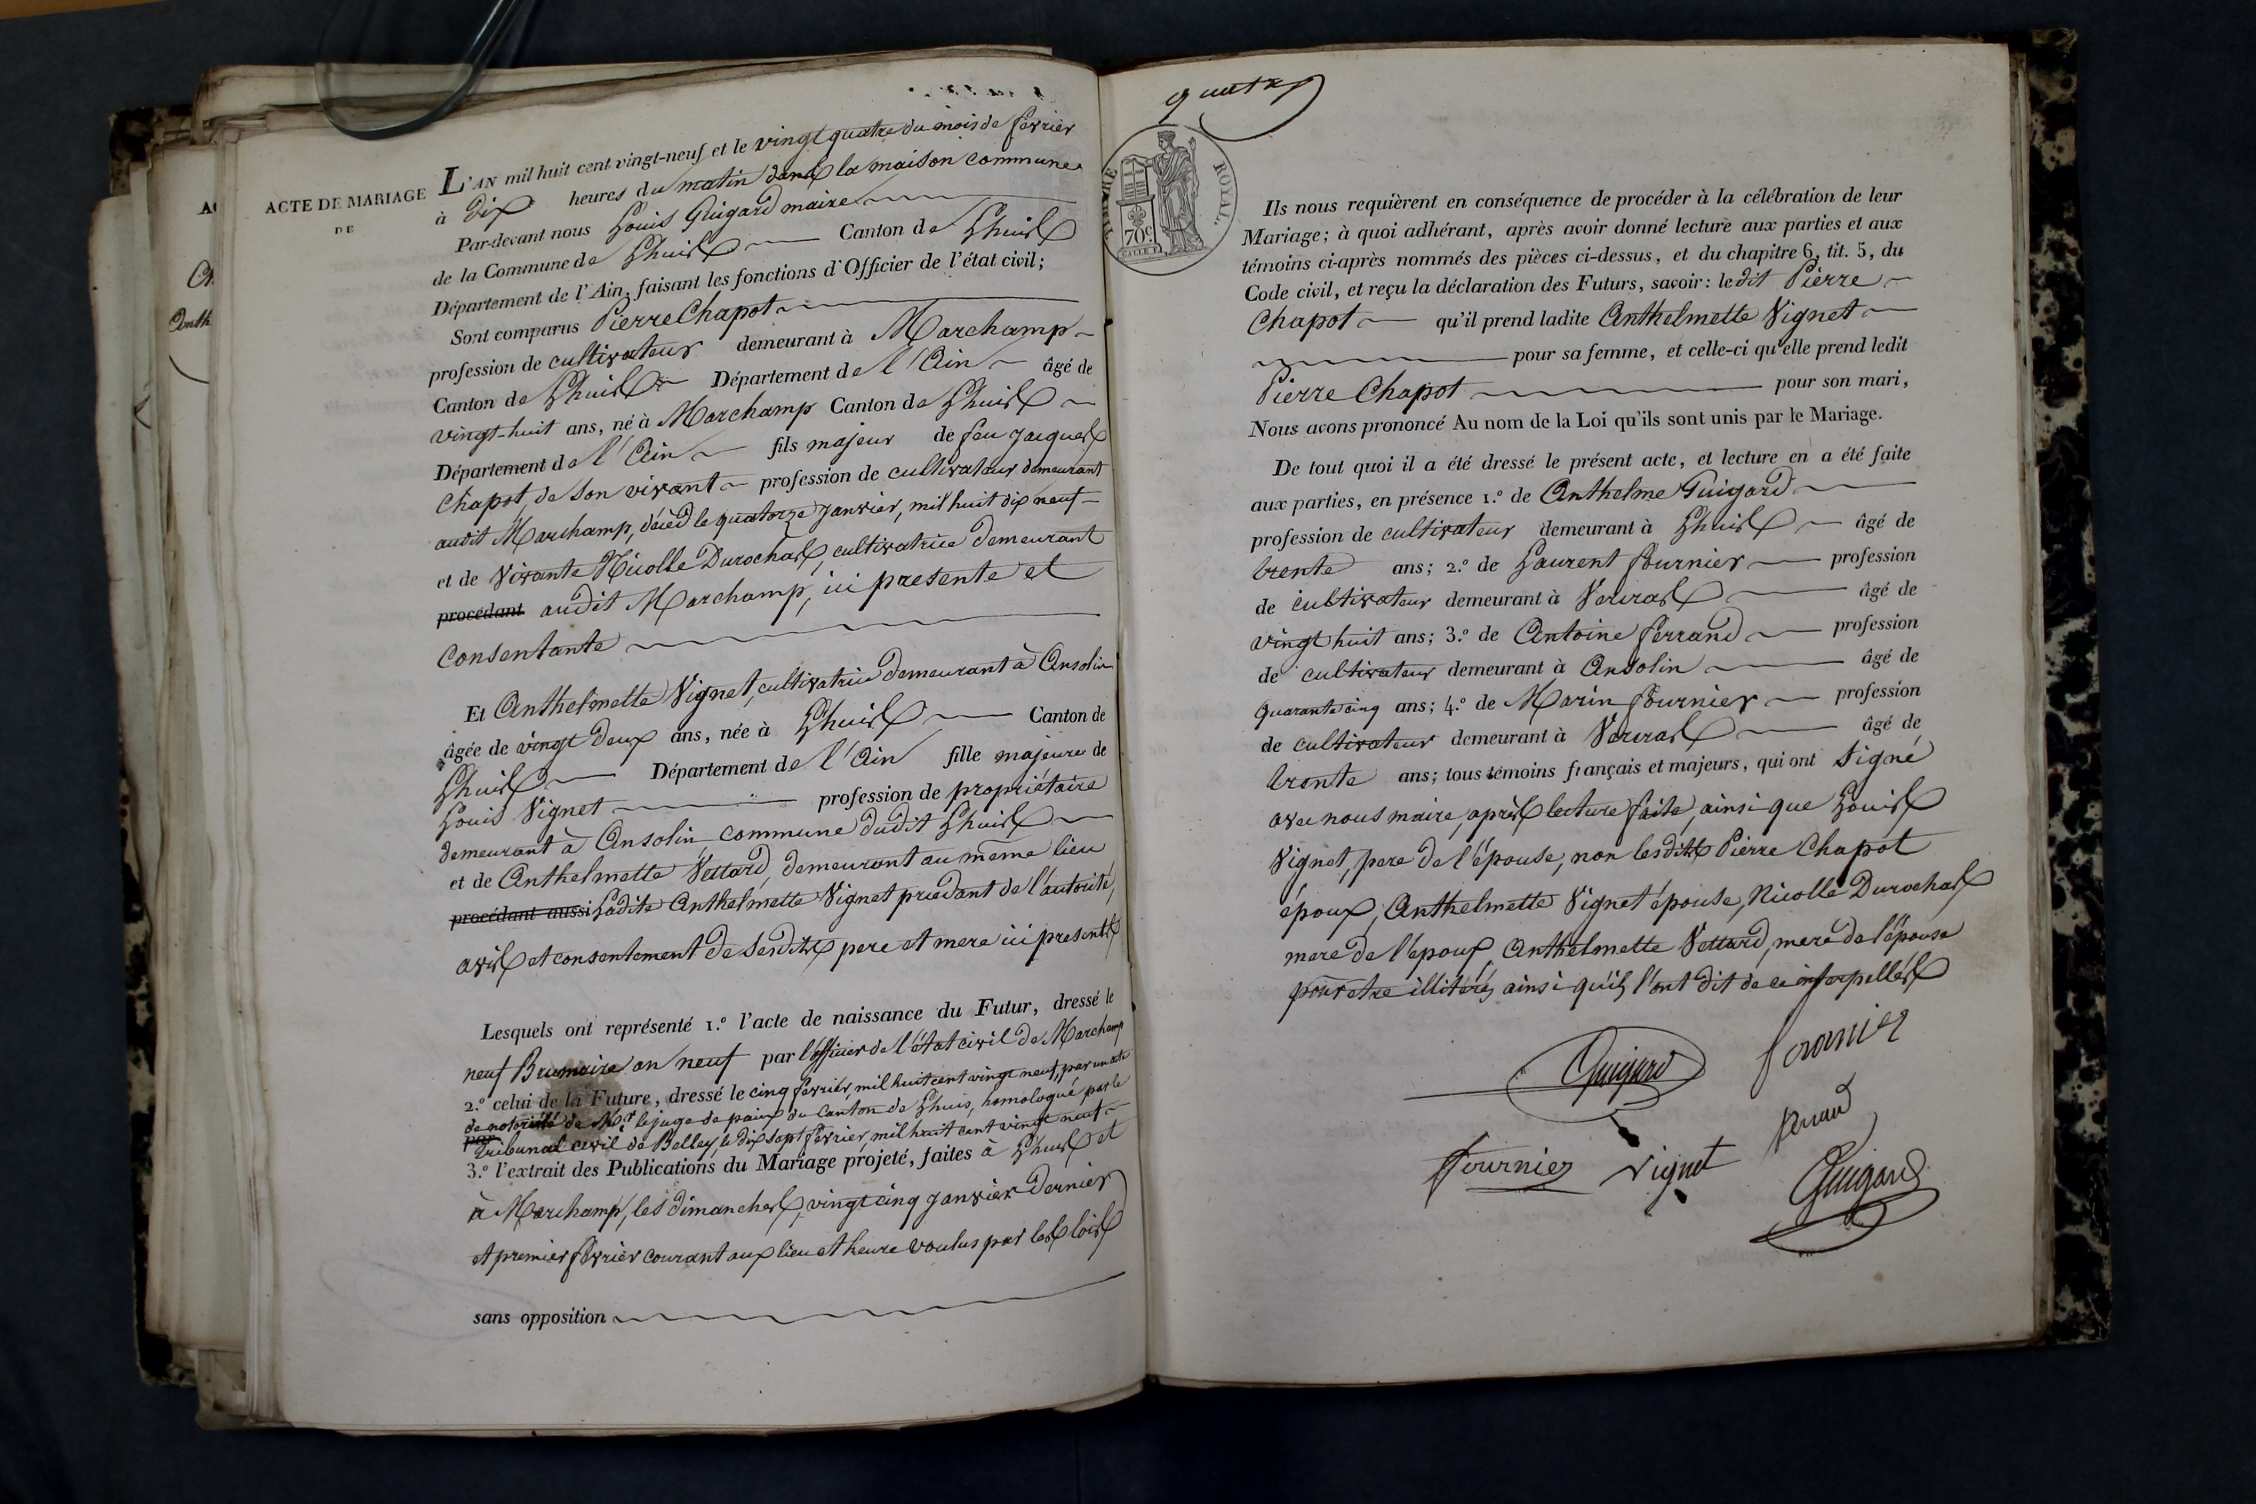 ACTE DE MARIAGE
DE
L'AN mil huit cent vingt-neuf et le vingt quatre du mois de fevrier
à dix heures du matin dans la maison commune
Par-devant nous Louis Guigard maire
de la Commune de Lhuis Canton de Lhuis
Département de l'Ain, faisant les fonctions d'Officier de l'état civil;
Sont comparus Pierre Chapot
profession de cultivateur demeurant à Marchamp
Canton de Lhuis Département de l'Ain âgé de
vingt-huit ans, né à Marchamp Canton de Lhuis
Département de l'Ain fils majeur de feu jacques
Chapot, de son vivant profession de cultivateur demeurant
audit Marchamp, décéd le quatorze janvier, mil huit dix neuf
et de vivante Nicolle Durochas, cultivatrice demeurant
procédant audit Marchamp, ici presente et
consentante
Et Anthelmette Vignet, cultivatrice demeurant à Ansolin
âgée de vingt deux ans, née à Lhuis Canton de
Lhuis Département de l'Ain fille majeure de
Louis Vignet profession de propriétaire
demeurant à Ansolin commune dudit Lhuis
et de Anthelmette Vettard, demeurant au même lieu
procédant aussi Ladite Anthelmette Vignet procédant de l'autorité,
avis et consentement de sesdits pere et mere ici presents
Lesquels ont représenté 1.º l'acte de naissance du Futur, dressé le
neuf Brumaire an neuf par l'officier de l'état civil de Marchamp
2.º celui de la Future, dressé le cinq fevrier, mil huit cent vingt neuf, par un acte
de notoriété de Mr. le juge de paix du Canton de Lhuis, homologué par le
par Tribunal civil de Belley, le dix sept fevrier, mil huit cent vingt neuf
3.º l'extrait des Publications du Mariage projeté, faites à Lhuis et
à Marchamp, les dimanches, vingt cinq janvier dernier
et premier fevrier courant aux lieu et heure voulus par les lois
sans opposition
quatre
TIMBRE ROYAL.
70c.
Ils nous requièrent en conséquence de procéder à la célébration de leur
Mariage; à quoi adhérant, après avoir donné lecture aux parties et aux
témoins ci-après nommés des pièces ci-dessus, et du chapitre 6, tit. 5, du
Code civil, et reçu la déclaration des Futurs, savoir: ledit Pierre
Chapot qu'il prend ladite Anthelmette Vignet
pour sa femme, et celle-ci qu'elle prend ledit
Pierre Chapot pour son mari,
Nous avons prononcé Au nom de la Loi qu'ils sont unis par le Mariage.
De tout quoi il a été dressé le présent acte, et lecture en a été faite
aux parties, en présence 1.º de Anthelme Guigard
profession de cultivateur demeurant à Lhuis âgé de
trente ans; 2.º de Laurent fournier profession
de cultivateur demeurant à Verras âgé de
vingt huit ans; 3.º de Antoine ferrand profession
de cultivateur demeurant à Ansolin âgé de
quarante cinq ans; 4.º de Marin fournier profession
de cultivateur demeurant à Verras âgé de
trente ans; tous témoins français et majeurs, qui ont signé
avec nous maire, après lecture faite, ainsi que Louis
Vignet, pere de l'épouse, non lesdits Pierre Chapot
époux, Anthelmette Vignet épouse, Nicolle Durochas
mere de l'epoux, Anthelmette Vettard, mere de l'épouse
pour etre illitérés ainsi qu'ils l'ont dit de ce interpellés
Guigard fournier
ferrand
fournier vignet Guigard